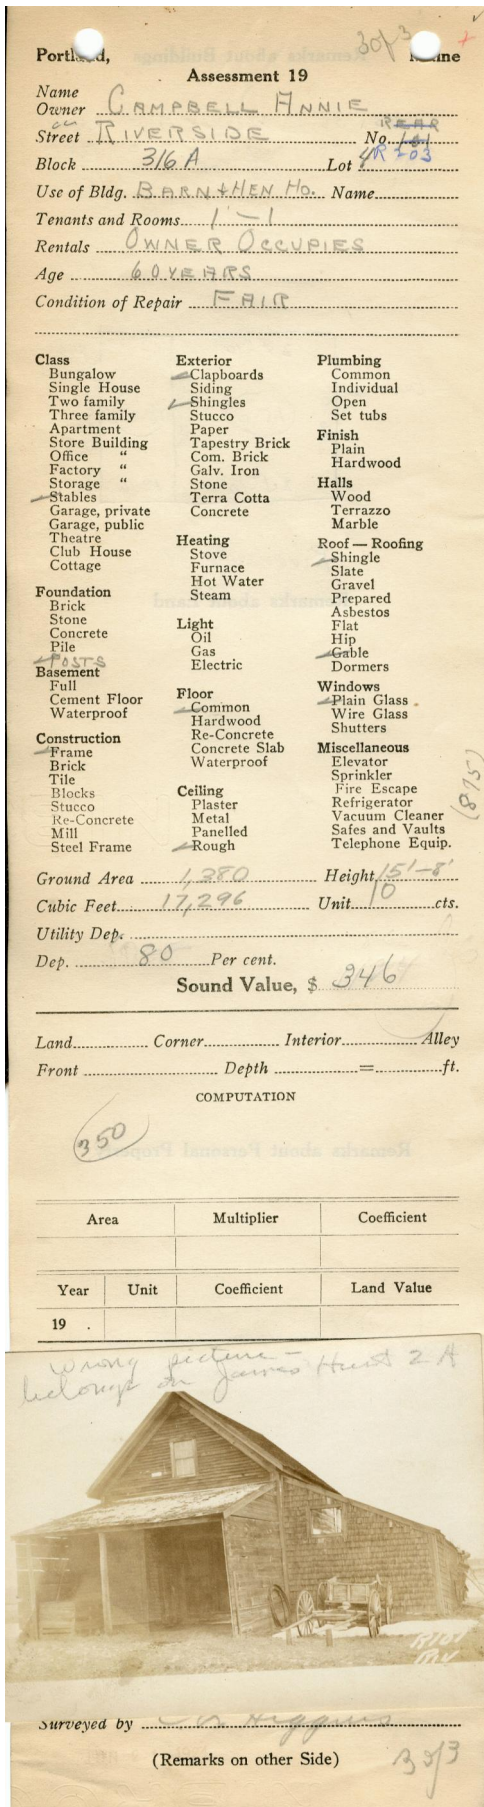 3 of 3
Portland, Maine
Assessment 19
Name
Owner CAMPBELL ANNIE
REAR
Street RIVERSIDE No. 101
R 203
Block 316 A Lot 4
Use of Bldg. BARN & HEN HO. Name
Tenants and Rooms 1 - 1
Rentals OWNER OCCUPIES
Age 60 YEARS
Condition of Repair FAIR
Class
Bungalow
Single House
Two family
Three family
Apartment
Store Building
Office "
Factory "
Storage "
Stables
Garage, private
Garage, public
Theatre
Club House
Cottage
Foundation
Brick
Stone
Concrete
Pile
POSTS
Basement
Full
Cement Floor
Waterproof
Construction
Frame
Brick
Tile
Blocks
Stucco
Re-Concrete
Mill
Steel Frame
Exterior
Clapboards
Siding
Shingles
Stucco
Paper
Tapestry Brick
Com. Brick
Galv. Iron
Stone
Terra Cotta
Concrete
Heating
Stove
Furnace
Hot Water
Steam
Light
Oil
Gas
Electric
Floor
Common
Hardwood
Re-Concrete
Concrete Slab
Waterproof
Ceiling
Plaster
Metal
Panelled
Rough
Plumbing
Common
Individual
Open
Set tubs
Finish
Plain
Hardwood
Halls
Wood
Terrazzo
Marble
Roof — Roofing
Shingle
Slate
Gravel
Prepared
Asbestos
Flat
Hip
Gable
Dormers
Windows
Plain Glass
Wire Glass
Shutters
Miscellaneous
Elevator
Sprinkler
Fire Escape
Refrigerator
Vacuum Cleaner
Safes and Vaults
Telephone Equip.
(875)
Ground Area 1,380 Height 15'-8'
Cubic Feet 17,296 Unit 10 cts.
Utility Dep.
Dep. 80 Per cent.
Sound Value, $ 346
Land Corner Interior Alley
Front Depth = ft.
COMPUTATION
350
Area Multiplier Coefficient
Year Unit Coefficient Land Value
19 .
wrong picture -
belongs on James Hunt 2 A
R101
RIV
Surveyed by Higgins
(Remarks on other Side)
3 of 3